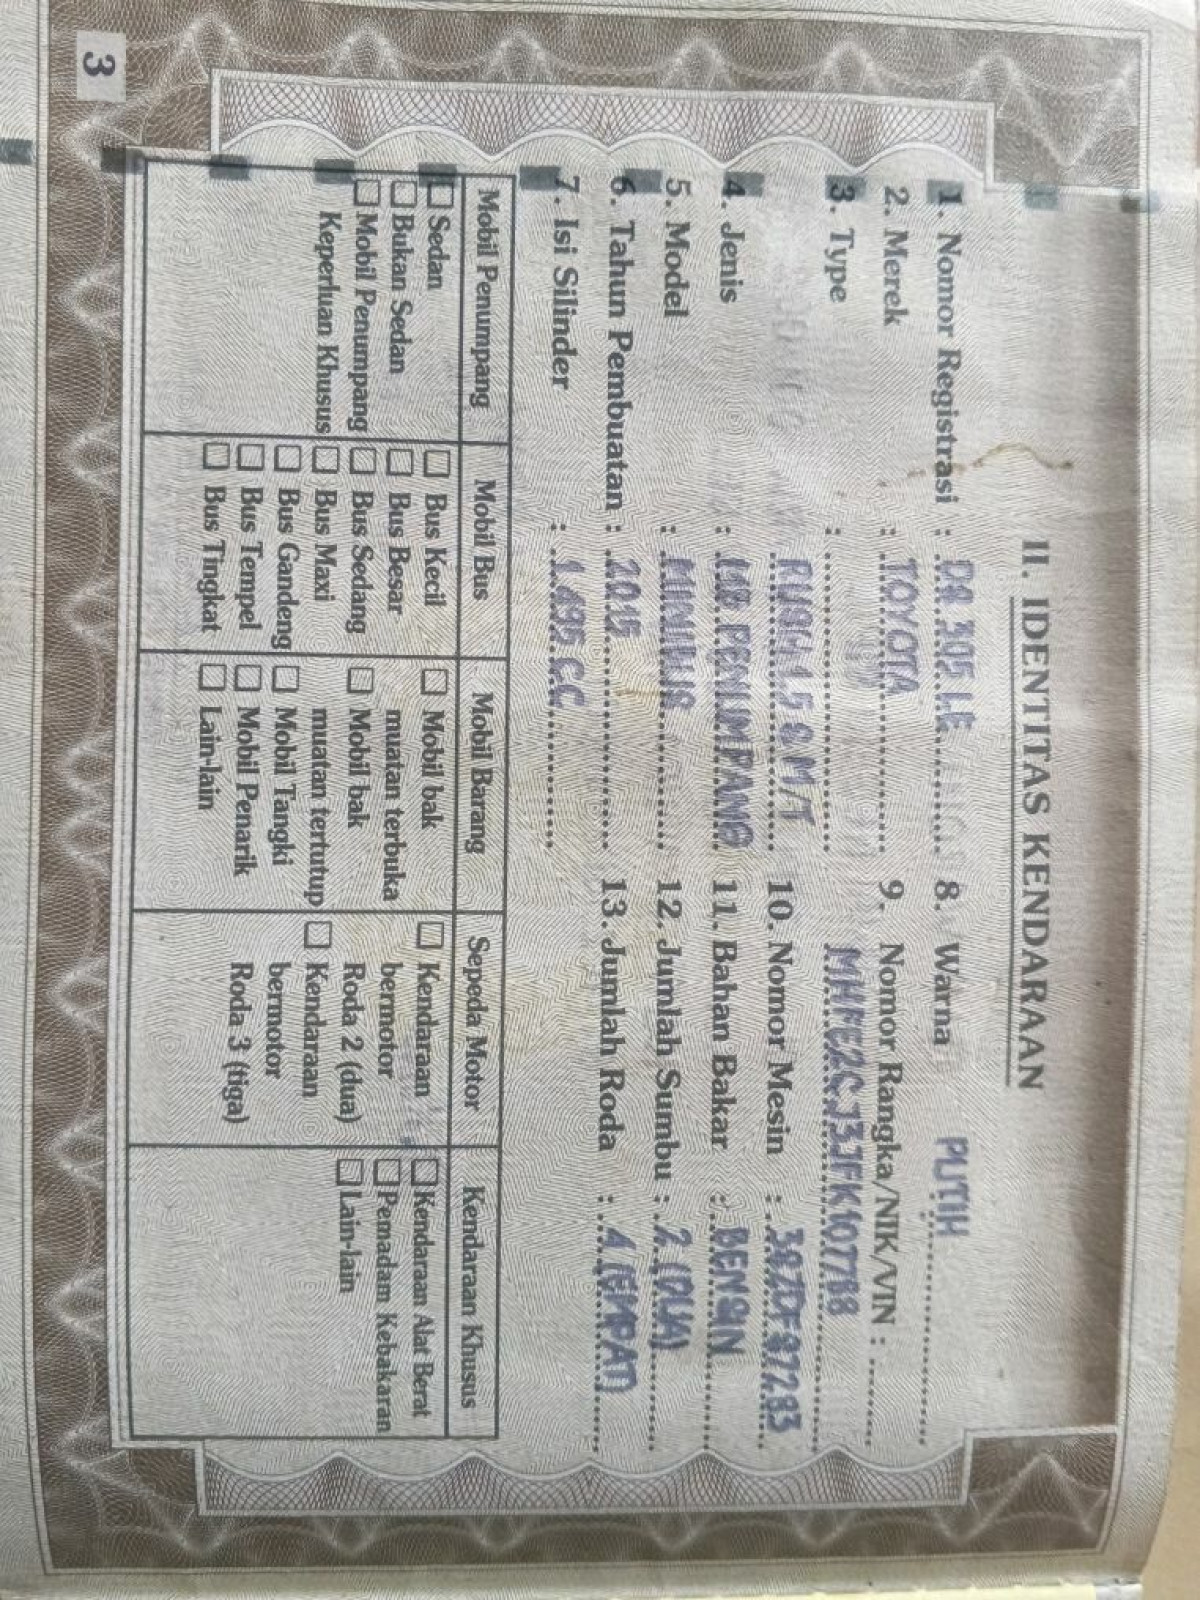 II. IDENTITAS KENDARAAN
1. Nomor Registrasi : DA 305 LE
2. Merek : TOYOTA
3. Type :
RUSH 1.5 S M/T
4. Jenis : MB PENUMPANG
5. Model : MINIBUS
6. Tahun Pembuatan : 2015
7. Isi Silinder : 1.495 CC
8. Warna PUTIH
9. Nomor Rangka/NIK/VIN :
MHFE2CJ3JFK107788
10. Nomor Mesin :
11. Bahan Bakar : BENSIN
12. Jumlah Sumbu : 2 (DUA)
13. Jumlah Roda : 4 (EMPAT)
Mobil Penumpang
Sedan
Bukan Sedan
Mobil Penumpang
Keperluan Khusus
Mobil Bus
Bus Kecil
Bus Besar
Bus Sedang
Bus Maxi
Bus Gandeng
Bus Tempel
Bus Tingkat
Mobil Barang
Mobil bak
muatan terbuka
Mobil bak
muatan tertutup
Mobil Tangki
Mobil Penarik
Lain-lain
Sepeda Motor
Kendaraan
bermotor
Roda 2 (dua)
Kendaraan
bermotor
Roda 3 (tiga)
Kendaraan Khusus
Kendaraan Alat Berat
Pemadam Kebakaran
Lain-lain
3